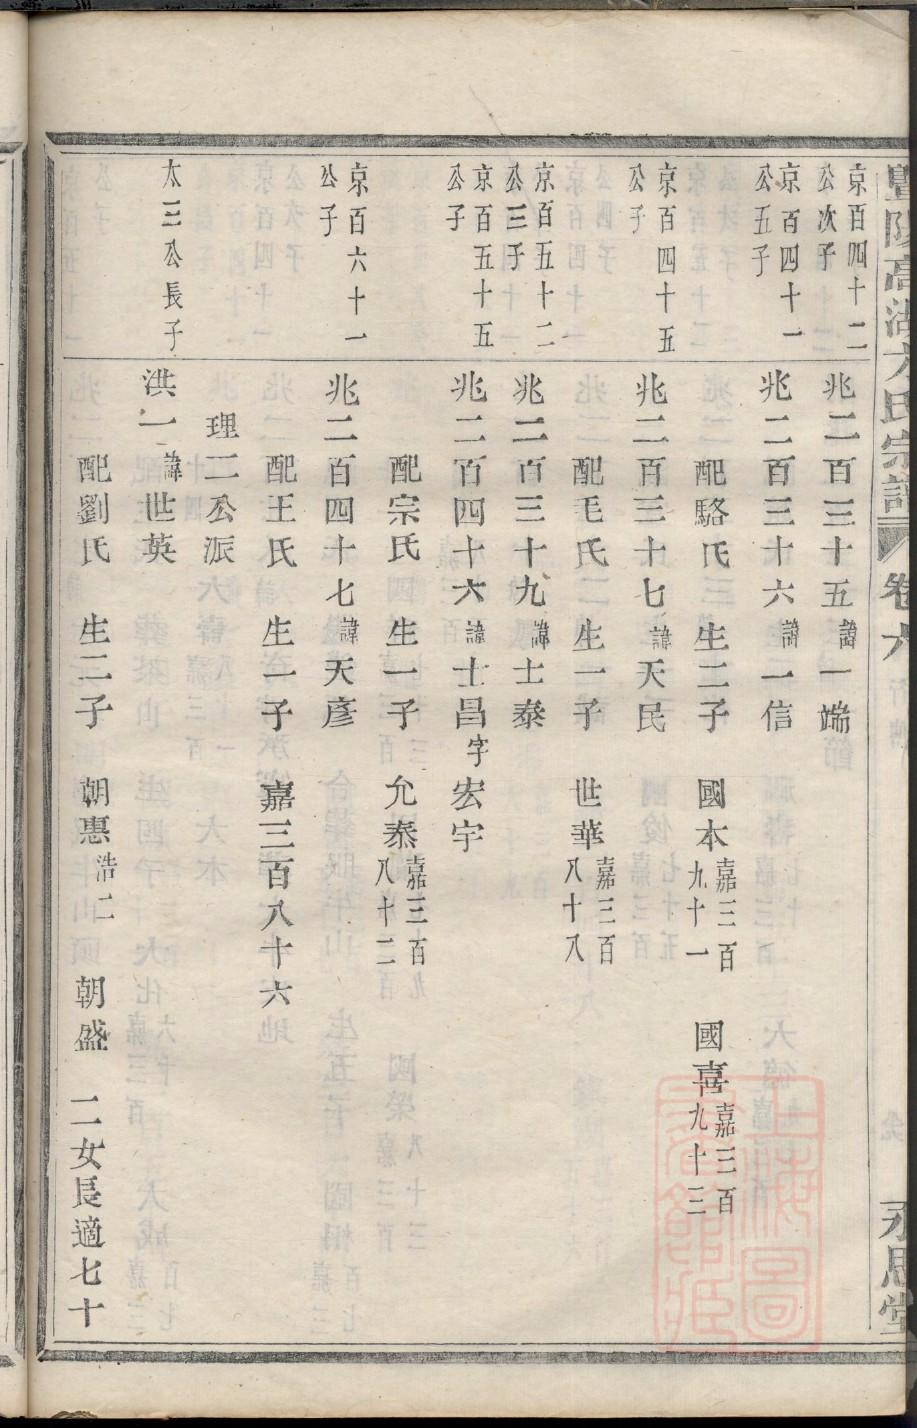 暨陽高湖方氏宗譜 卷六 永思堂
京百四十二公次子 兆二百三十五諱一端
京百四十一公五子 兆二百三十六諱一信
配駱氏 生二子 國本嘉三百九十一 國喜嘉三百九十三
京百四十五公子 兆二百三十七諱天民
配毛氏 生一子 世華嘉三百八十八
京百五十二公三子 兆二百三十九諱士泰
京百五十五公子 兆二百四十六諱士昌字宏宇
配宗氏 生一子 允泰嘉三百八十二
京百六十一公子 兆二百四十七諱天彥
配王氏 生一子 嘉三百八十六
理二公派
太三公長子 洪一諱世英
配劉氏 生二子 朝惠浩二 朝盛 二女長適七十